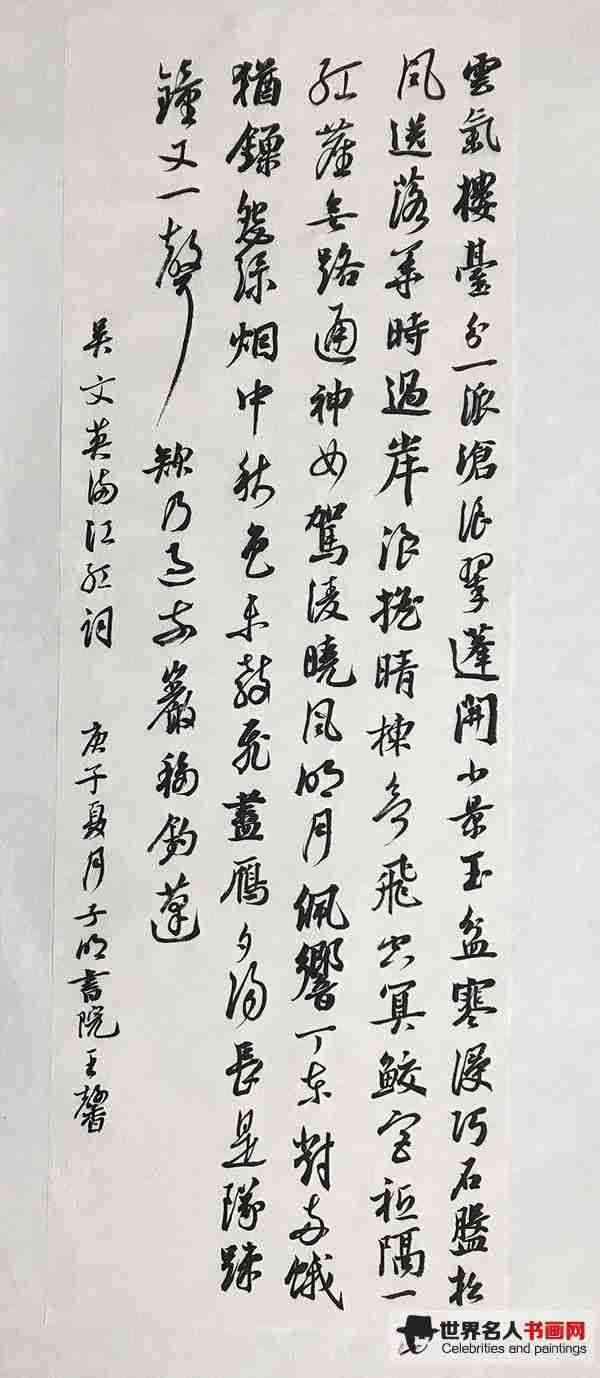 雲氣樓臺分一派滄浪翠蓬開小景玉盆寒浸巧石盤松
風送落華時過岸浪搖晴棟欲飛空算鮫宮祗隔一
紅塵無路通神女駕淩曉風明月佩響丁東對兩蛾
猶鎖怨綠烟中秋色未教飛盡雁夕陽長是墜疎
鐘又一聲欸乃過前巖移釣蓬
吴文英滿江紅詞 庚子夏月子明書院王馨
世界名人书画网
Celebrities and paintings